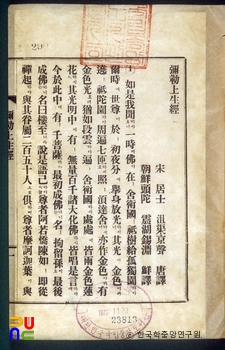 29
彌勒上生經
宋 居士 沮渠京聲 唐譯
朝鮮 頭陀 震湖錫淵 鮮譯
一、如是我聞 一時 佛 在 舍衛國 祇樹給孤獨園
爾時 世尊 於 初夜分 擧身放光 其光 金色
遶 祇陀園 周遍七匝 照 須達舍 亦作金色 有
金色光 猶如段雲 遍 舍衛國 處處 皆雨金色蓮
花 其光明中 有 無量百千諸大化佛 皆唱是言
今於此中 有 千菩薩 最初成佛 名 拘留孫 最後
成佛 名曰樓至 說是語已 尊者阿若憍陳如 卽從
禪起 與其眷屬二百五十人 俱 尊者摩訶迦葉 與
彌勒上生經
一
23813
© 한국학중앙연구원